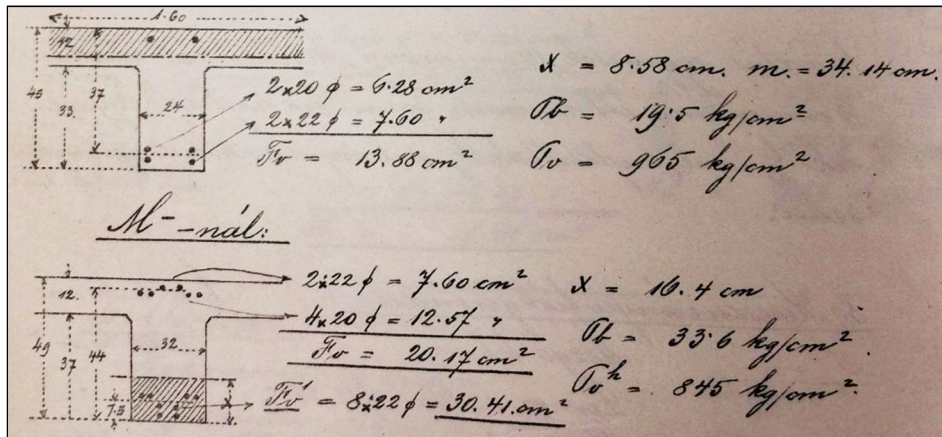 1.60
12
45
37
33.
24
2×20 ϕ = 6.28 cm²
2×22 ϕ = 7.60 "
Fv = 13.88 cm²
x = 8.58 cm. m. = 34.14 cm.
σb = 19.5 kg/cm²
σv = 965 kg/cm²
M⁻ -nál:
12.
49
37
44
32
7.5
2×22 ϕ = 7.60 cm²
4×20 ϕ = 12.57 "
Fv = 20.17 cm²
Fv' = 8×22 ϕ = 30.41 cm²
x = 16.4 cm
σb = 33.6 kg/cm²
σvh = 845 kg/cm²